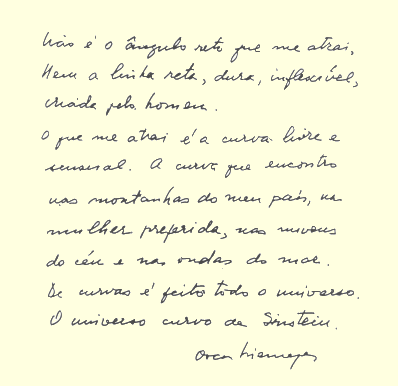 Não é o ângulo reto que me atrai,
Nem a linha reta, dura, inflexível,
criada pelo homem.
O que me atrai é a curva livre e
sensual. A curva que encontro
nas montanhas do meu país, na
mulher preferida, nas nuvens
do céu e nas ondas do mar.
De curvas é feito todo o universo.
O universo curvo de Einstein.
Oscar Niemeyer